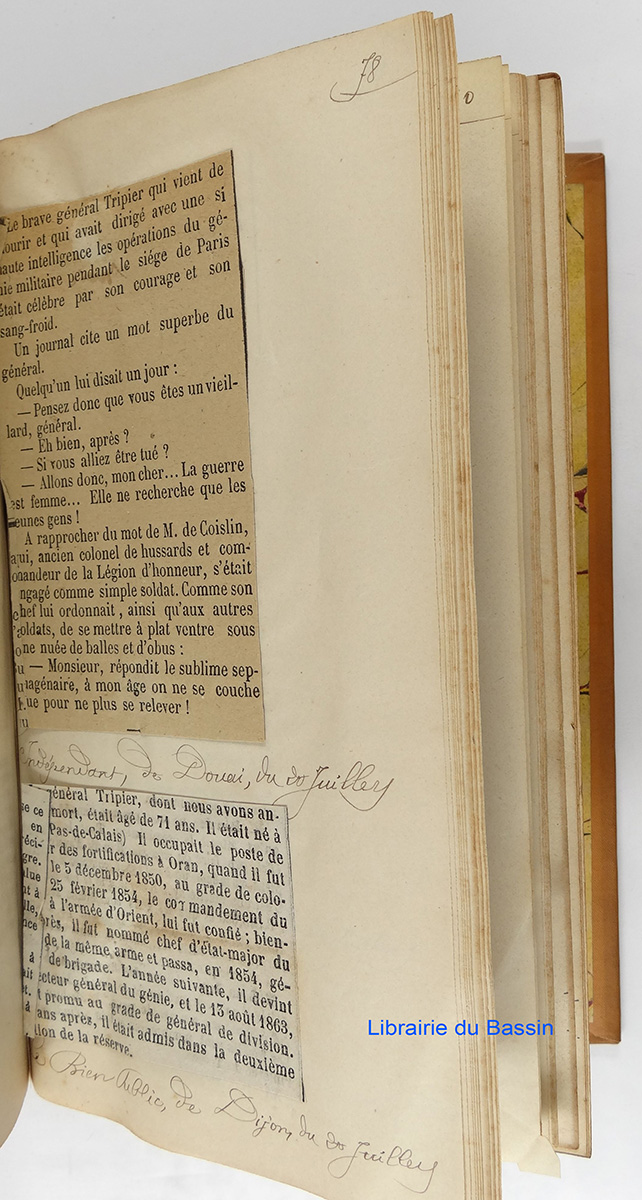 78
0
Le brave général Tripier qui vient de
ourir et qui avait dirigé avec une si
aute intelligence les opérations du gé-
nie militaire pendant le siége de Paris
était célèbre par son courage et son
sang-froid.
Un journal cite un mot superbe du
général.
Quelqu'un lui disait un jour :
— Pensez donc que vous êtes un vieil-
lard, général.
— Eh bien, après ?
— Si vous alliez être tué ?
— Allons donc, mon cher... La guerre
est femme... Elle ne recherche que les
jeunes gens !
A rapprocher du mot de M. de Coislin,
qui, ancien colonel de hussards et com-
mandeur de la Légion d'honneur, s'était
ngagé comme simple soldat. Comme son
chef lui ordonnait, ainsi qu'aux autres
soldats, de se mettre à plat ventre sous
ne nuée de balles et d'obus :
— Monsieur, répondit le sublime sep-
uagénaire, à mon âge on ne se couche
ue pour ne plus se relever !
Indépendant, de Douai, du 20 Juillet
énéral Tripier, dont nous avons an-
mort, était âgé de 71 ans. Il était né à
Pas-de-Calais) Il occupait le poste de
r des fortifications à Oran, quand il fut
le 5 décembre 1850, au grade de colo-
25 février 1854, le commandement du
à l'armée d'Orient, lui fut confié ; bien-
près, il fut nommé chef d'état-major du
de la même arme et passa, en 1854, gé-
de brigade. L'année suivante, il devint
ecteur général du génie, et le 13 août 1863,
t promu au grade de général de division.
ans après, il était admis dans la deuxième
tion de la réserve.
Bien Public, de Dijon, du 20 Juillet
Librairie du Bassin